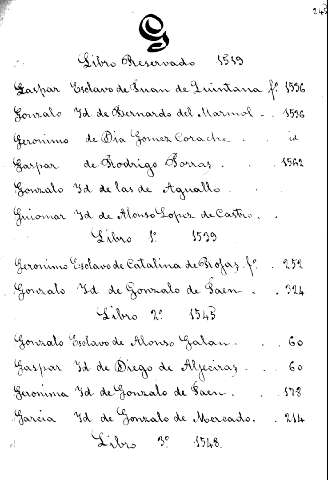 245
G
Libro Reservado 1519
Gaspar Esclavo de Juan de Quintana fº 1596
Gonzalo Id de Bernardo del Marmol . . 1596
Geronimo de Dia Gomez Corache . . id
Gaspar de Rodrigo Porras . . . 1562
Gonzalo Id de las de Aguallo . . .
Guiomar Id de Alonso Lopez de Castro . .
Libro 1º 1539
Geronimo Esclavo de Catalina de Rojas fº . 252
Gonzalo Id de Gonzalo de Jaen . . 324
Libro 2º 1543
Gonzalo Esclavo de Alonso Galan . . . 60
Gaspar Id de Diego de Algeciras . . . 60
Geronima Id de Gonzalo de Jaen . . . 178
Garcia Id de Gonzalo de Mercado . . 214
Libro 3º 1548